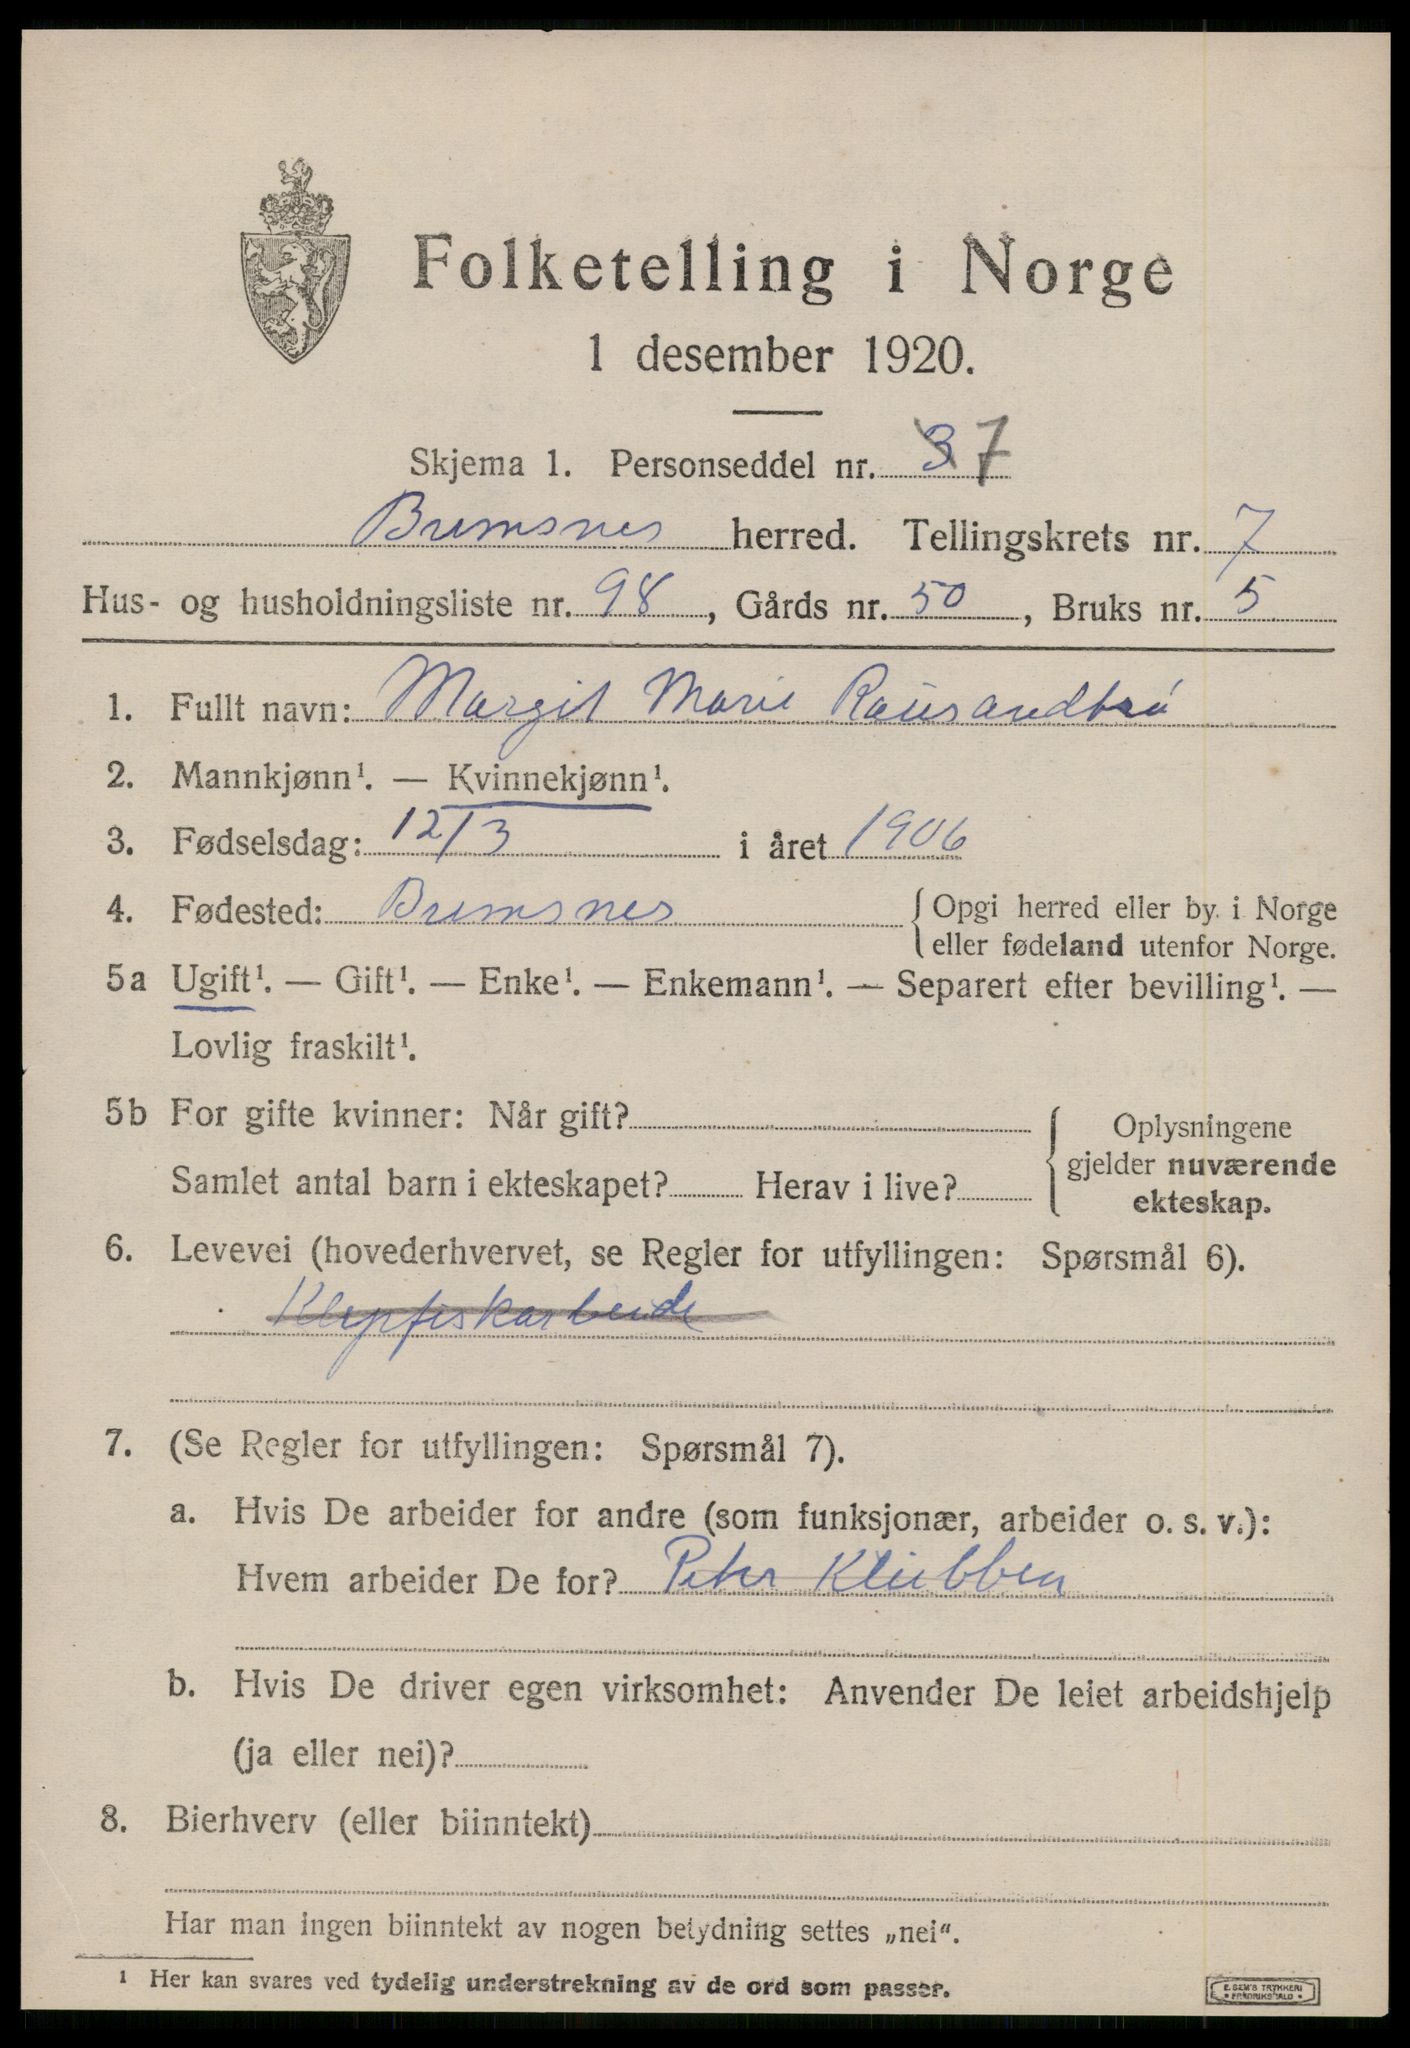 Folketelling i Norge
1 desember 1920.
Skjema 1. Personseddel nr. 3 7
Bremsnes herred. Tellingskrets nr. 7
Hus- og husholdningsliste nr. 98, Gårds nr. 50, Bruks nr. 5
1. Fullt navn: Margit Marie Rausandbrå
2. Mannkjønn¹. — Kvinnekjønn¹.
3. Fødselsdag: 12/3 i året 1906
4. Fødested: Bremsnes {Opgi herred eller by i Norge
eller fødeland utenfor Norge.
5a Ugift¹. — Gift¹. — Enke¹. — Enkemann¹. — Separert efter bevilling¹. —
Lovlig fraskilt¹.
5b For gifte kvinner: Når gift?
Samlet antal barn i ekteskapet? Herav i live?
{Oplysningene
gjelder nuværende
ekteskap.
6. Levevei (hovederhvervet, se Regler for utfyllingen: Spørsmål 6).
Klepfiskarbeide
7. (Se Regler for utfyllingen: Spørsmål 7).
a. Hvis De arbeider for andre (som funksjonær, arbeider o. s. v.):
Hvem arbeider De for? Peter Klubben
b. Hvis De driver egen virksomhet: Anvender De leiet arbeidshjelp
(ja eller nei)?
8. Bierhverv (eller biinntekt)
Har man ingen biinntekt av nogen betydning settes „nei“.
¹ Her kan svares ved tydelig understrekning av de ord som passer.
E. SEM'S TRYKKERI
• FREDRIKSHALD •